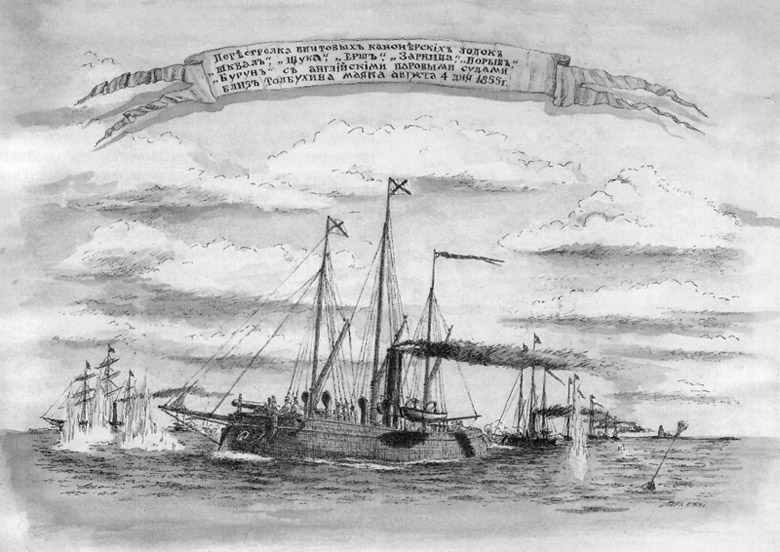 Перѣстрелка винтовыхъ канонѣрскихъ лодокъ
„Шквалъ“, „Щука“, „Ершъ“, „Зарница“, „Порывъ“,
„Бурунъ“ съ английскими паровыми судами
близъ Толбухина маяка августа 4 дня 1855г.